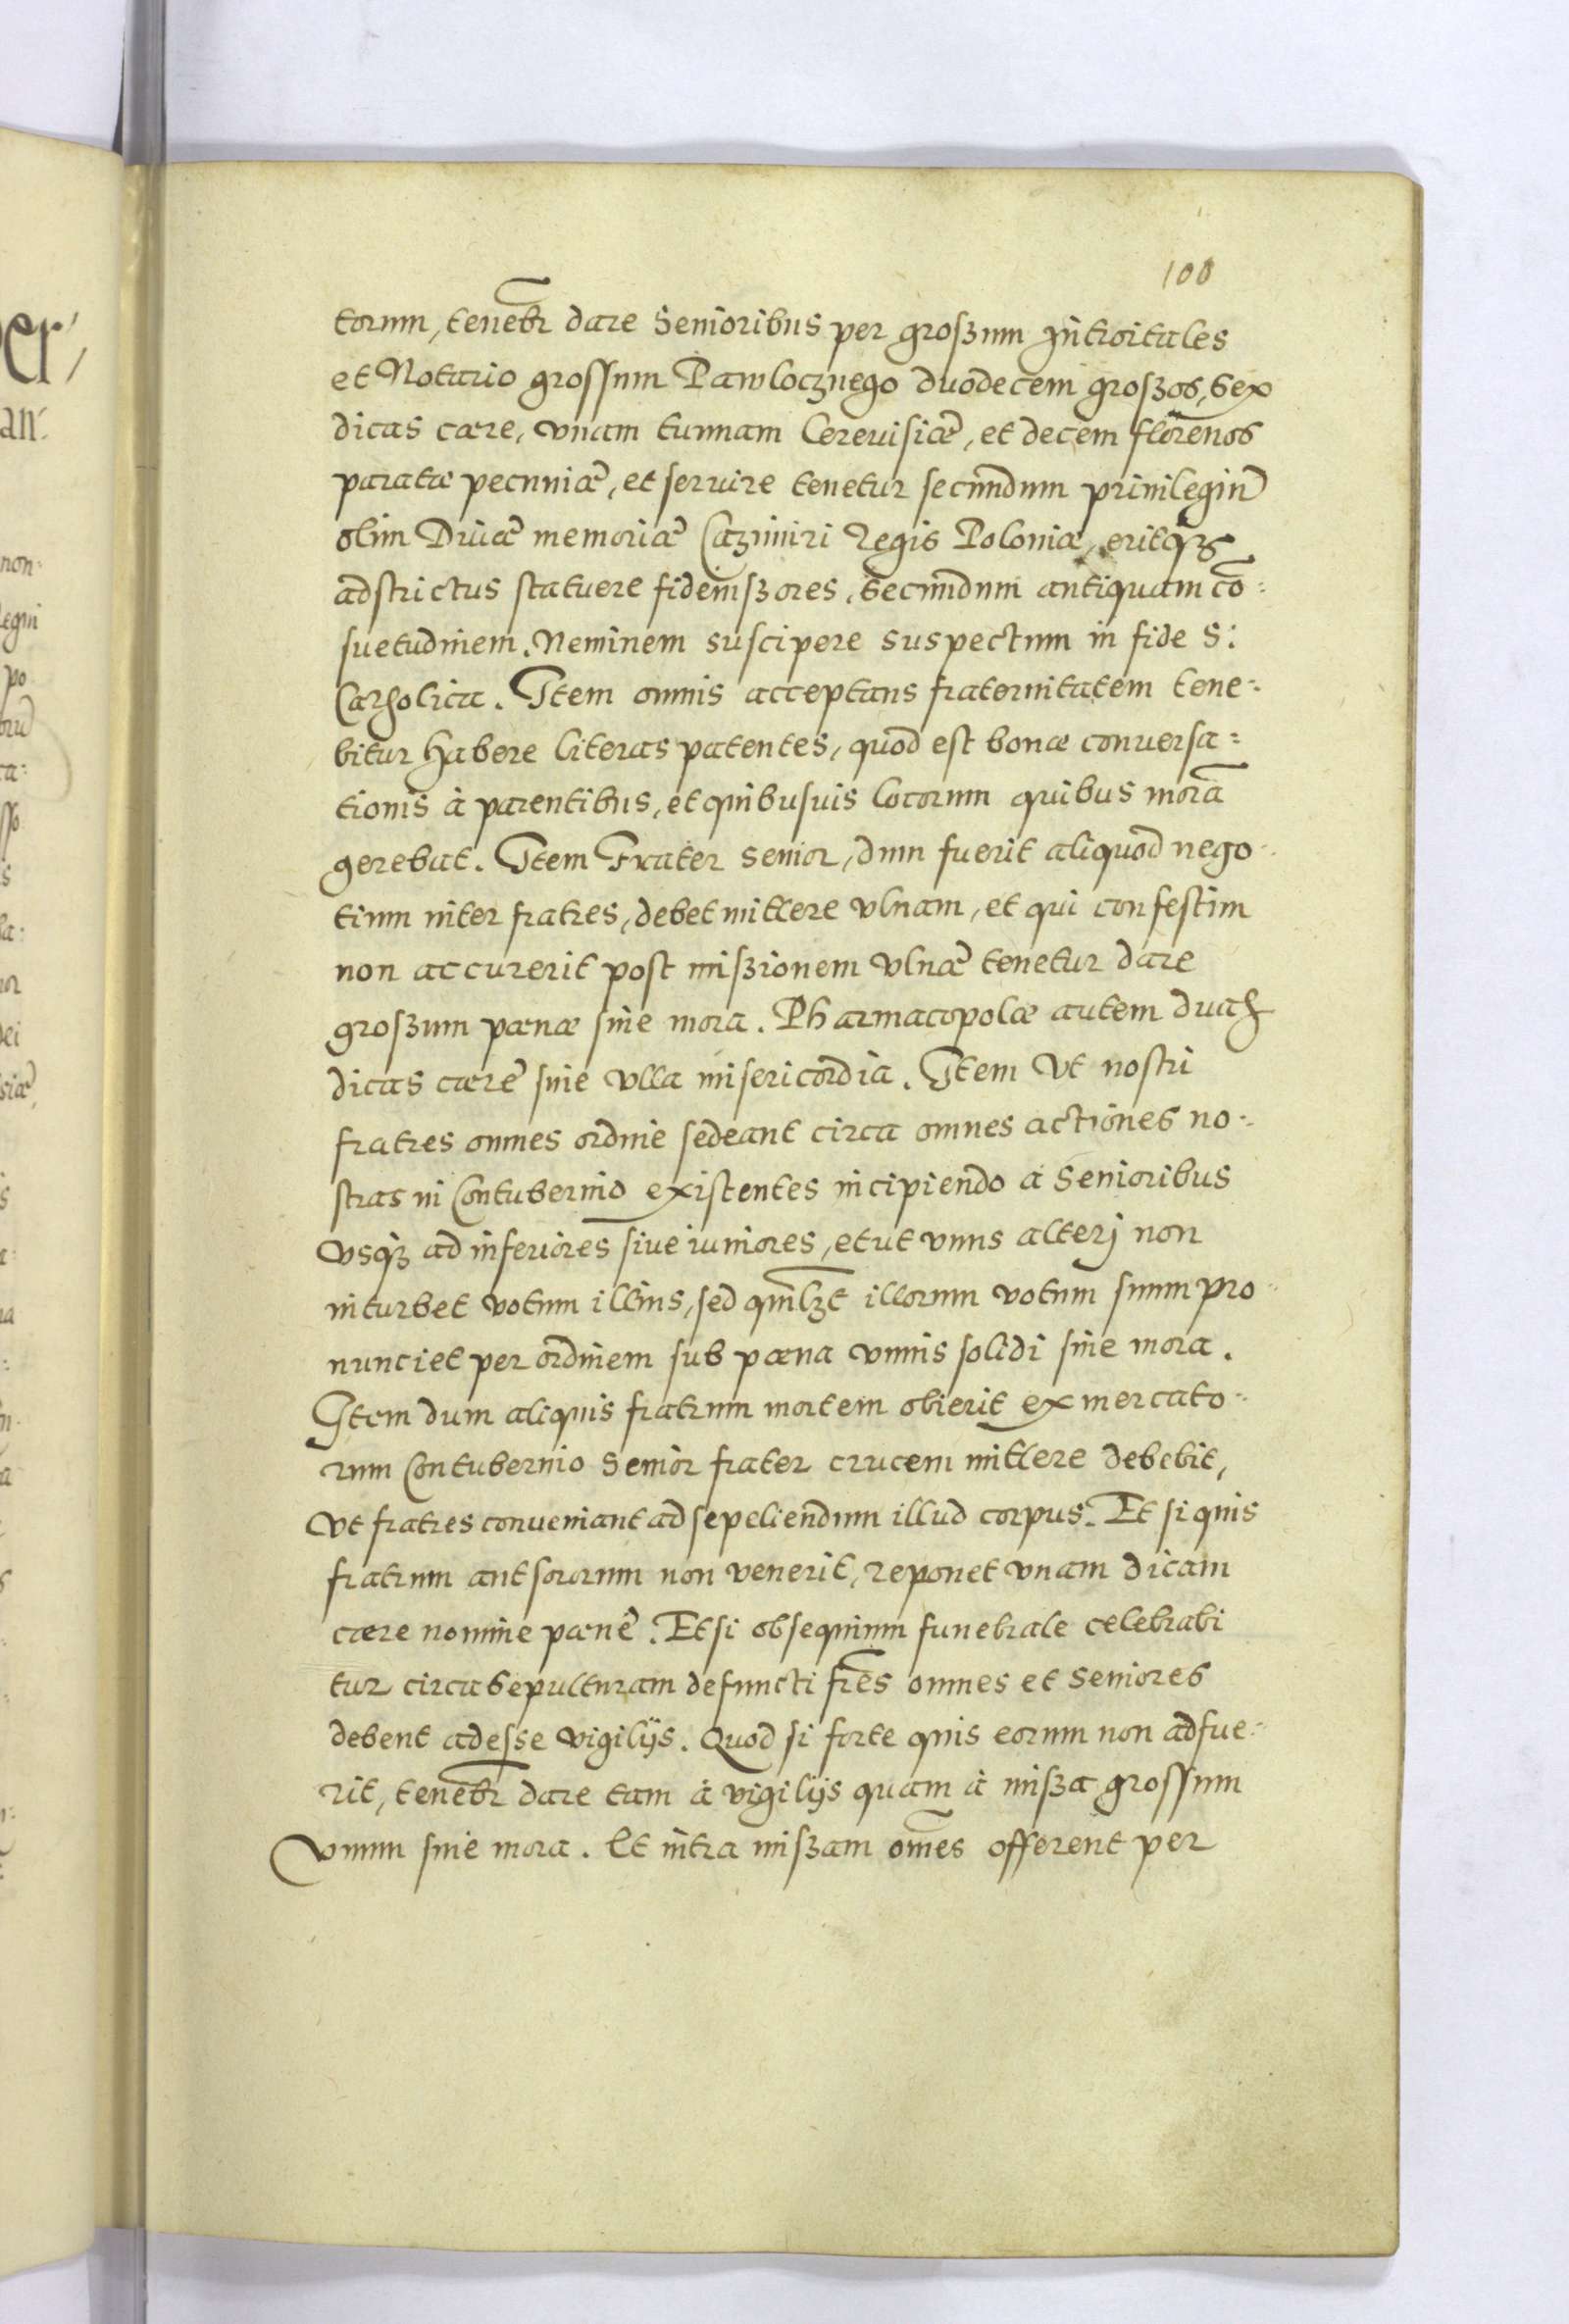 108
torum, tenebr̃ dare Senioribus per großum Introitales
et Notario grossum Pawlocznego duodecem großos, Sex
dicas cære, vnam tunnam Cerevisiæ, et decem florenos
paratæ pecuniæ, et servire tenetur secundum privilegiũ
olim Divæ memoriæ Cazimiri Regis Poloniæ, eritqꝫ
adstrictus statuere fideiußores, Secundum antiquam cõ:
suetudinem. Neminem suscipere suspectum in fide S:
Catholica. Item omnis acceptans fraternitatem tene:
bitur habere literas patentes, quod est bonæ conversa:
tionis à parentibus, et quibusuis locorum quibus morã
gerebat. Item Frater Senior, dum fuerit aliquod nego:
tium inter fratres, debet mittere vlnam, et qui confestim
non accurerit post mißionem vlnæ tenetur dare
großum pænæ sine mora. Pharmacopolæ autem duas
dicas cære sine vlla misericordia. Item Vt nostri
fratres omnes ordine sedeant circa omnes actiones no:
stras in Contubernio existentes incipiendo à Senioribus
vsqꝫ ad inferiores sive iuniores, et ut vnus alterj non
inturbet votum illius, sed quilꝫt illorum votum suum pro
nunciet per ordinem sub pæna vnius solidi sine mora.
Item dum aliquis fratrum mortem obierit ex mercato:
rum Contubernio Senior frater crucem mittere debebit,
Vt fratres conveniant ad sepeliendum illud corpus. Et si quis
fratrum aut sororum non venerit, reponet vnam dicam
cære nomine pæne. Et si obsequium funebrale celebrabi
tur circa Sepulturam defuncti fr̃es omnes et Seniores
debent adesse vigilijs. Quod si forte quis eorum non adfue:
rit, tenebr̃ dare tam à vigilijs quam à mißa grossum
vnum sine mora. Et intra mißam om̃es offerent per